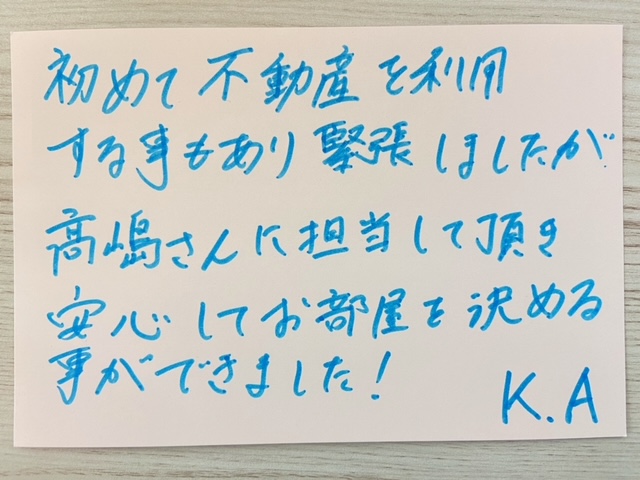 初めて不動産を利用
する事もあり緊張しましたが
高嶋さんに担当して頂き
安心してお部屋を決める
事ができました!
K.A